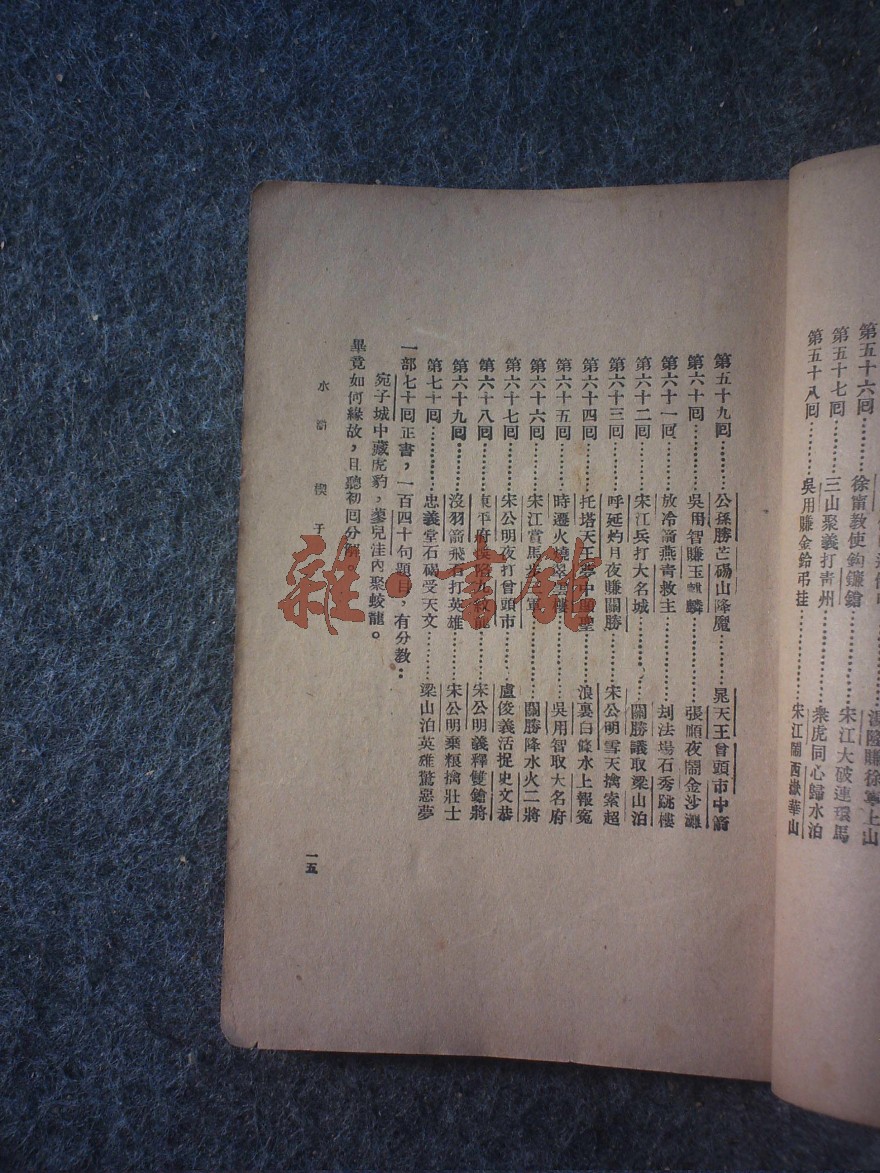 第五十六回………徐甯教使鉤鐮鎗………湯隆賺徐寧上山
第五十七回………三山聚義打青州………宋江大破連環馬
第五十八回………吳用賺金鈴吊挂………衆虎同心歸水泊
宋江鬧西嶽華山
第五十九回………公孫勝芒碭山降魔………晁天王曾頭市中箭
第六十回………吳用智賺玉麒麟………張順夜鬧金沙灘
第六十一回………放冷箭燕青救主………刦法場石秀跳樓
第六十二回………宋江兵打大名城………關勝議取梁山泊
第六十三回………呼延灼月夜賺關勝………宋公明雪天擒索超
第六十四回………托塔天王夢中顯聖………浪裏白條水上報冤
第六十五回………時遷火燒翠雲樓………吳用智取大名府
第六十六回………宋江賞馬步三軍………關勝降水火二將
第六十七回………宋公明夜打曾頭市………盧俊義活捉史文恭
第六十八回………東平府誤陷九紋龍………宋公明義釋雙鎗將
第六十九回………沒羽箭飛石打英雄………宋公明棄糧擒壯士
第七十回………忠義堂石碣受天文………梁山泊英雄驚惡夢
一部七十回正書，一百四十句題目，有分教：
宛子城中藏虎豹，蓼兒洼內聚蛟龍。
畢竟如何緣故，且聽初回分解
水滸 楔子
一五
雜·書舖